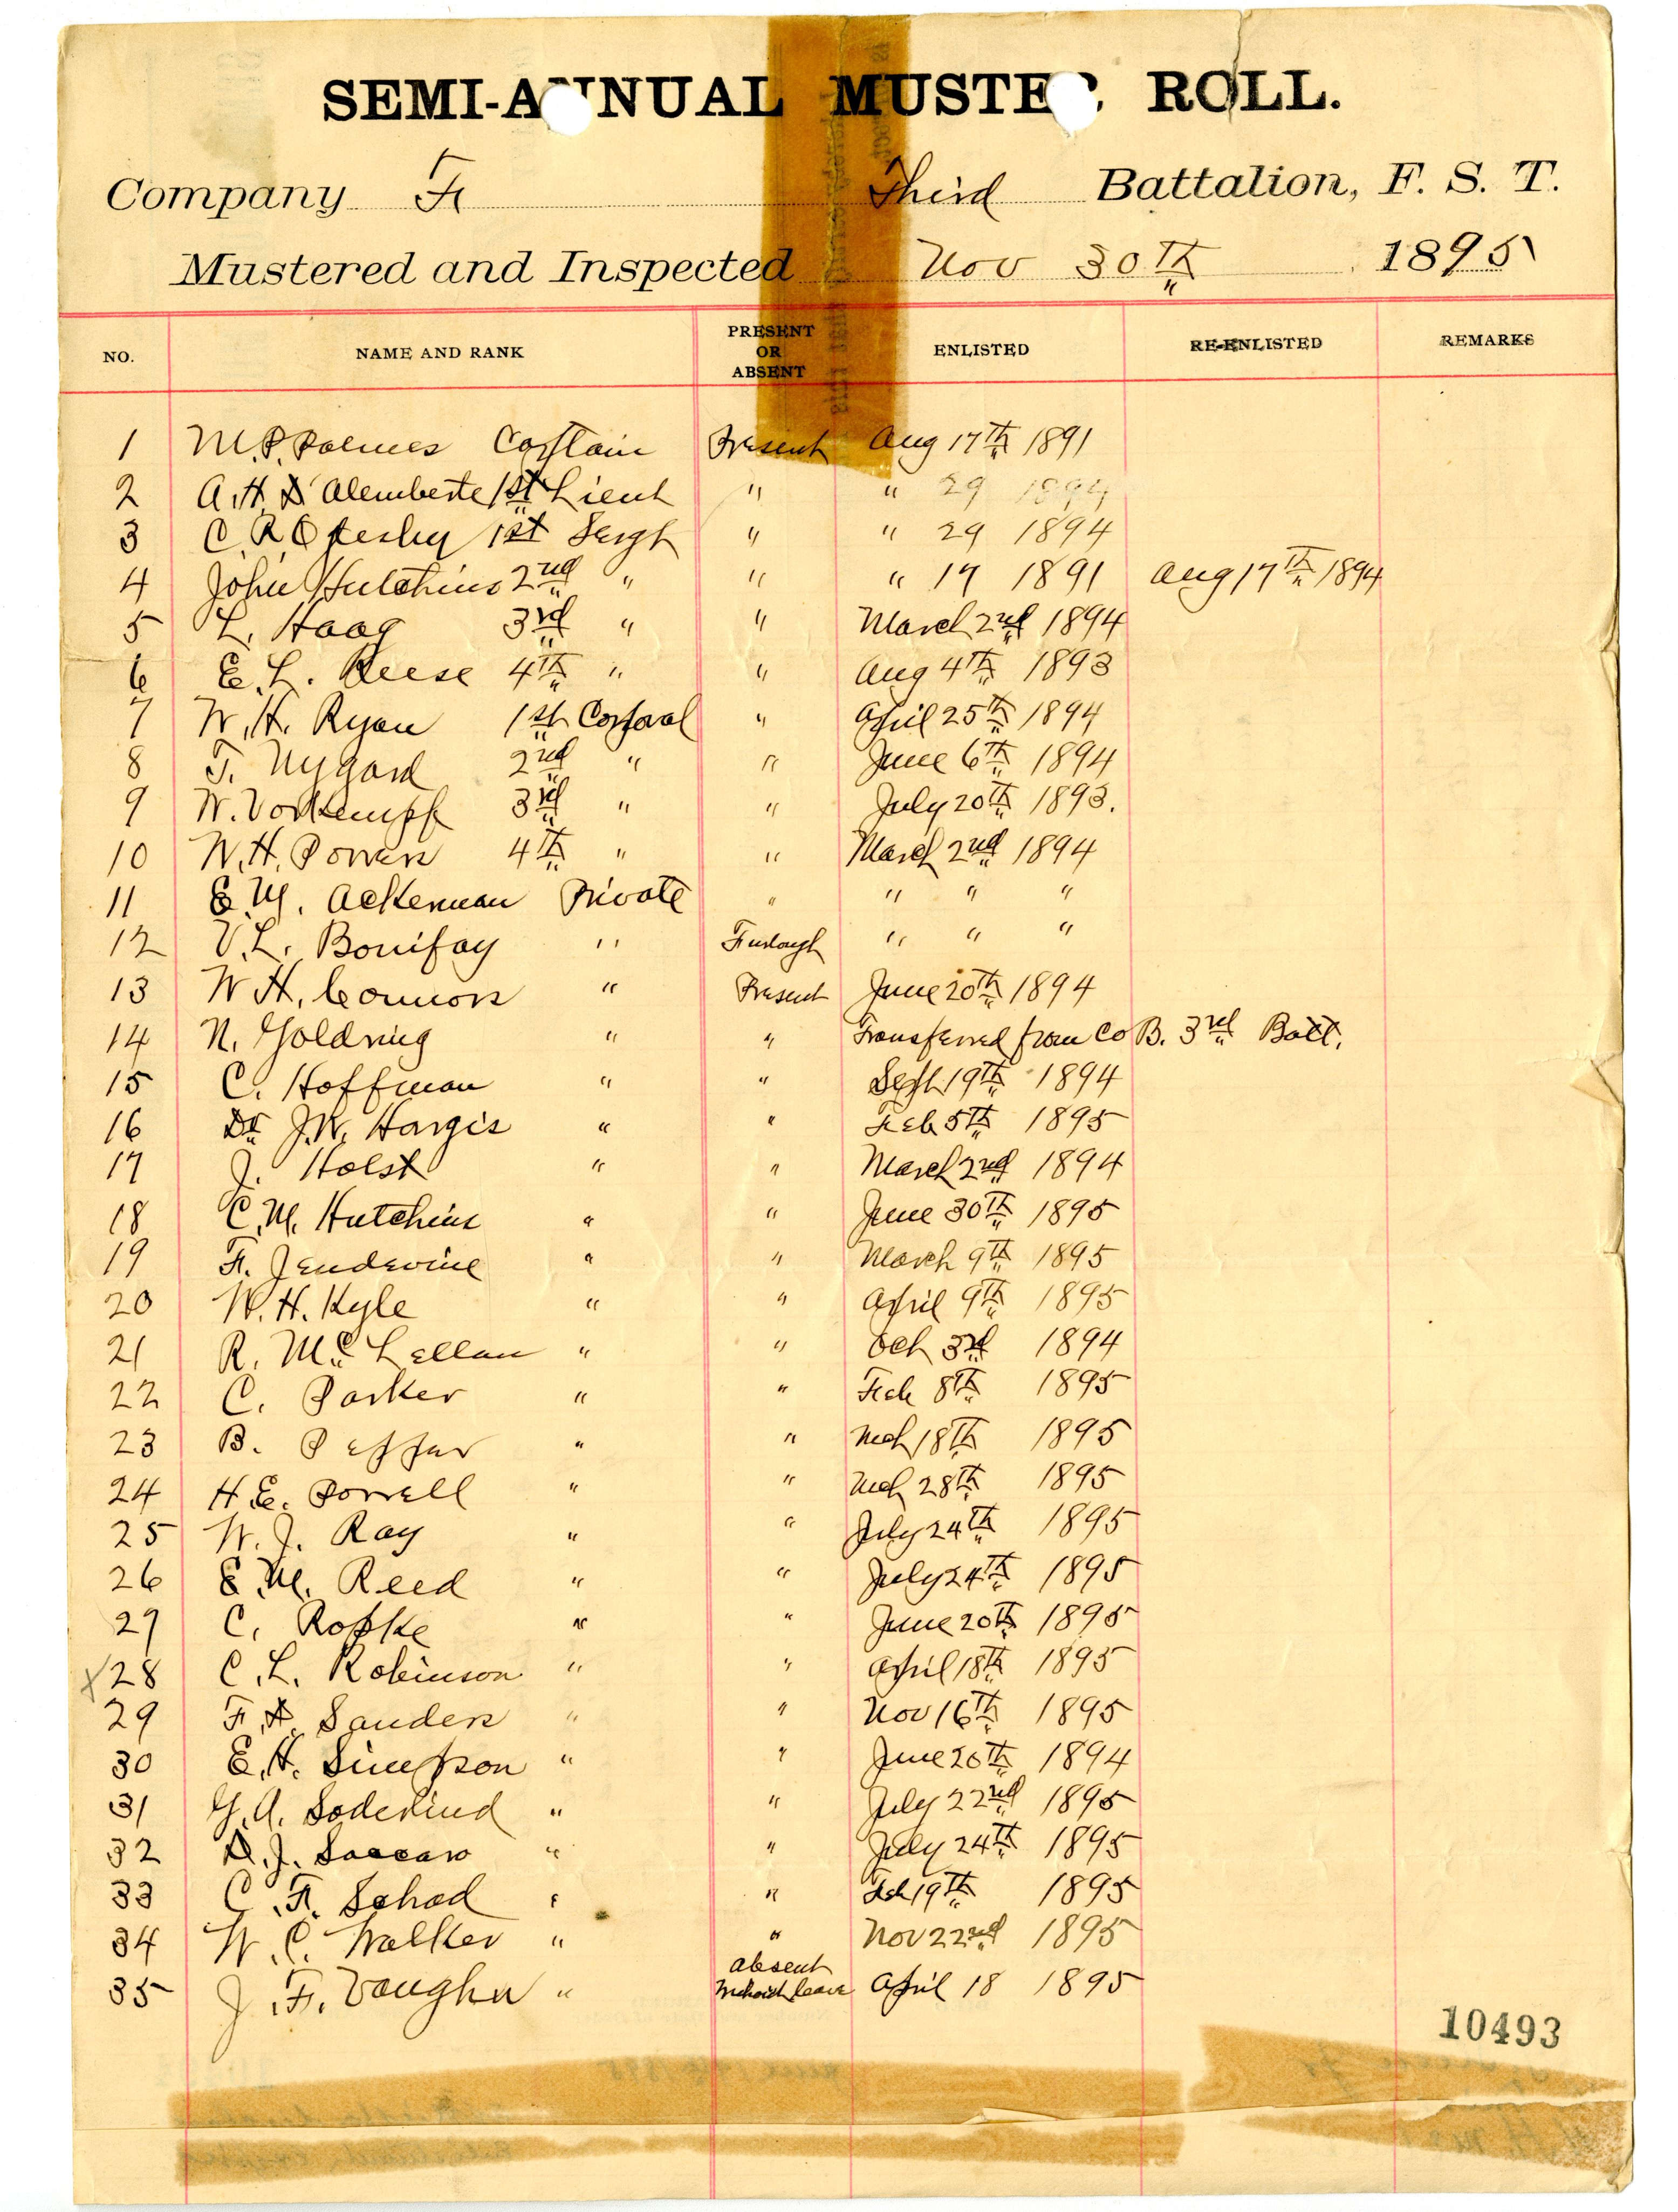 SEMI-ANNUAL MUSTER ROLL.
Company F Third Battalion, F. S. T.
Mustered and Inspected Nov 30th 1895
NO. NAME AND RANK PRESENT OR ABSENT ENLISTED RE-ENLISTED REMARKS
1 M.P. Palmes Captain Present Aug 17th 1891
2 A.H. D'Alemberte 1st Lieut " " 29 1894
3 C.R. Oglesby 1st Sergt " " 29 1894
4 John Hutchins 2nd " " " 17 1891 Aug 17th 1894
5 L. Haag 3rd " " March 2nd 1894
6 E.L. Reese 4th " " Aug 4th 1893
7 W.H. Ryan 1st Corporal " April 25th 1894
8 T. Nygard 2nd " " June 6th 1894
9 W. Vorkempff 3rd " " July 20th 1893.
10 W.H. Powers 4th " " March 2nd 1894
11 E.M. Ackerman Private " " " "
12 V.L. Bonifay " Furlough " " "
13 W H. Connors " Present June 20th 1894
14 N. Goldring " " Transferred from Co B. 3rd Batt.
15 C. Hoffman " " Sept 19th 1894
16 Dr J.W. Hargis " " Feb 5th 1895
17 J. Holst " " March 2nd 1894
18 C.M. Hutchins " " June 30th 1895
19 F. Jendevine " " March 9th 1895
20 W.H. Kyle " " April 9th 1895
21 R. McLellan " " Oct 3rd 1894
22 C. Parker " " Feb 8th 1895
23 B. Peffer " " Mch 18th 1895
24 H.E. Powell " " Mch 28th 1895
25 W.J. Ray " " July 24th 1895
26 E.M. Reed " " July 24th 1895
27 C. Ropke " " June 20th 1895
x 28 C.L. Robinson " " April 18th 1895
29 F.A. Sanders " " Nov 16th 1895
30 E.H. Simpson " " June 20th 1894
31 G.A. Soderlind " " July 22nd 1895
32 D.J. Saccaro " " July 24th 1895
33 C.F. Schad " " Feb 19th 1895
34 W.C. Walker " " Nov 22nd 1895
35 J.F. Vaughn " Absent Without leave April 18 1895
10493